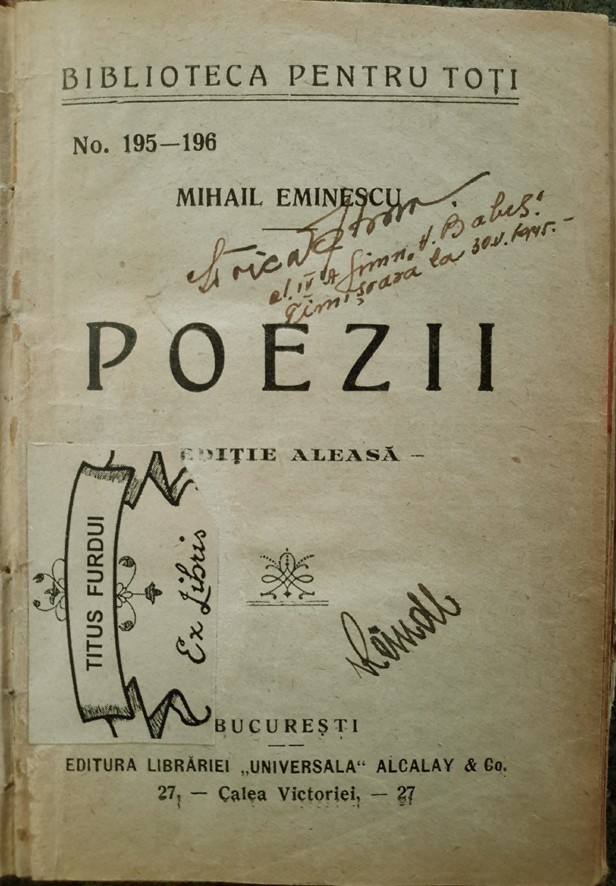 BIBLIOTECA PENTRU TOȚI
No. 195—196
MIHAIL EMINESCU
el. IV A Gimn. V. Babeș.
Timișoara la 30.V.1945.-
POEZII
EDIȚIE ALEASĂ —
TITUS FURDUI
Ex Libris
BUCUREȘTI
EDITURA LIBRĂRIEI „UNIVERSALA“ ALCALAY & Co.
27, — Calea Victoriei, — 27